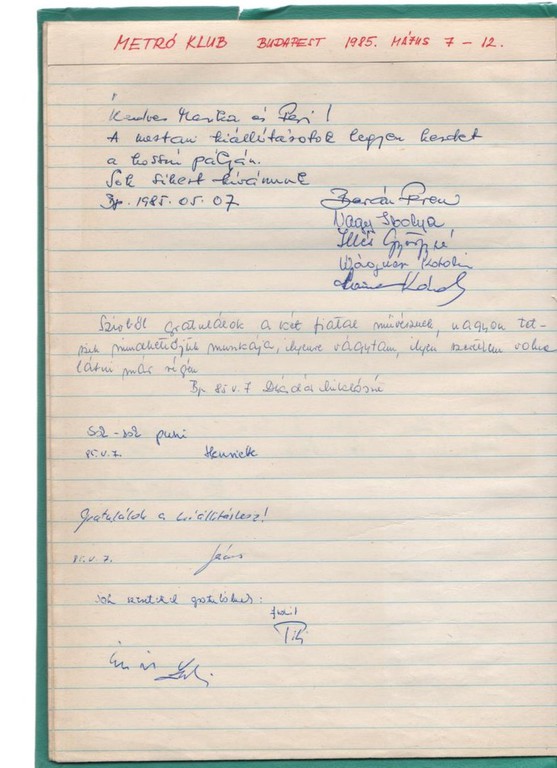 METRÓ KLUB BUDAPEST 1985. MÁJUS 7 - 12.
Kedves Marika és Peri!
A mostani kiállításotok legyen kezdet
a hosszú pályán.
Sok sikert kívánunk
Bp. 1985.05.07
Nagy Ibolya
Illés Györgyné
Katalin
Károly
Szívből gratulálok a két fiatal művésznek, nagyon tet-
szik mindkettőjük munkája, ilyenre vágytam, ilyet szerettem volna
látni már régen
Bp. 85.V.7 Miklósné
Sok-sok puszi
85.V.7. Henriette
Gratulálok a kiállításhoz!
85.V.7. János
Sok szeretettel gratulálnak: